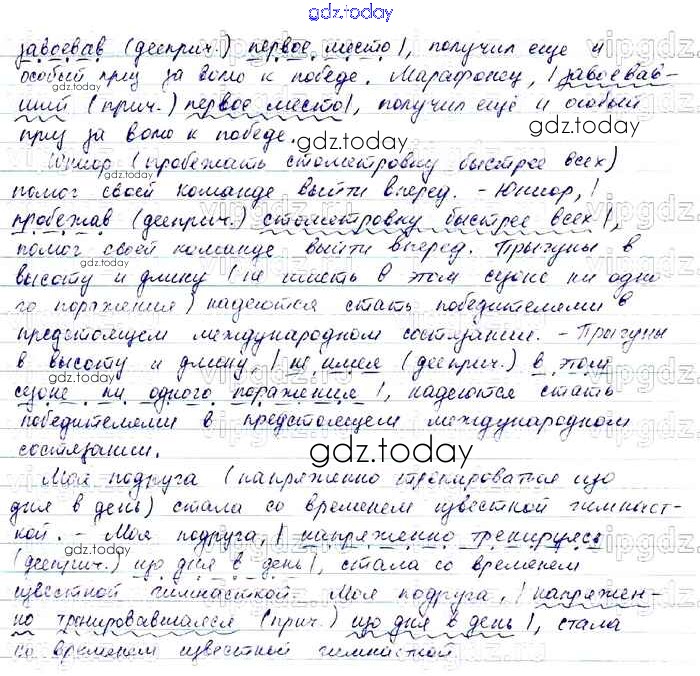 gdz.today
завоевав (дееприч.) первое место|, получил еще и
особый приз за волю к победе. Марафонец, |завоевав-
ший (прич.) первое место|, получил ещё и особый
приз за волю к победе.
gdz.today
Юниор (пробежать стометровку быстрее всех)
помог своей команде выйти вперед. - Юниор, |
пробежав (дееприч.) стометровку быстрее всех|,
помог своей команде выйти вперед. Прыгуны в
высоту и длину (не иметь в этом сезоне ни одно
го поражения) надеются стать победителями в
предстоящем международном состязании. - Прыгуны
в высоту и длину, | не имея (дееприч.) в этом
сезоне ни одного поражения |, надеются стать
победителями в предстоящем международном
состязании.
gdz.today
Моя подруга (напряженно тренироваться изо
дня в день) стала со временем известной гимнаст-
кой. - Моя подруга, | напряженно тренируясь
(дееприч.) изо дня в день|, стала со временем
известной гимнасткой. Моя подруга, | напряжен-
но тренировавшаяся (прич.) изо дня в день |, стала
со временем известной гимнасткой